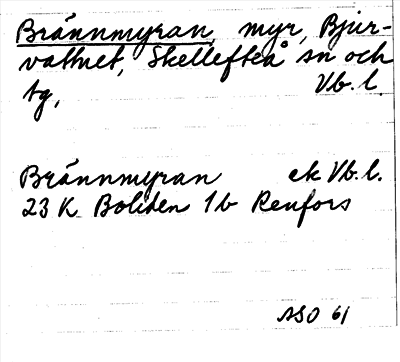 Brännmyran, myr, Bjur-
vattnet, Skellefteå sn och
tg, Vb. l.
Brännmyran ek Vb. l.
23 K Boliden 1b Renfors
ASO 61